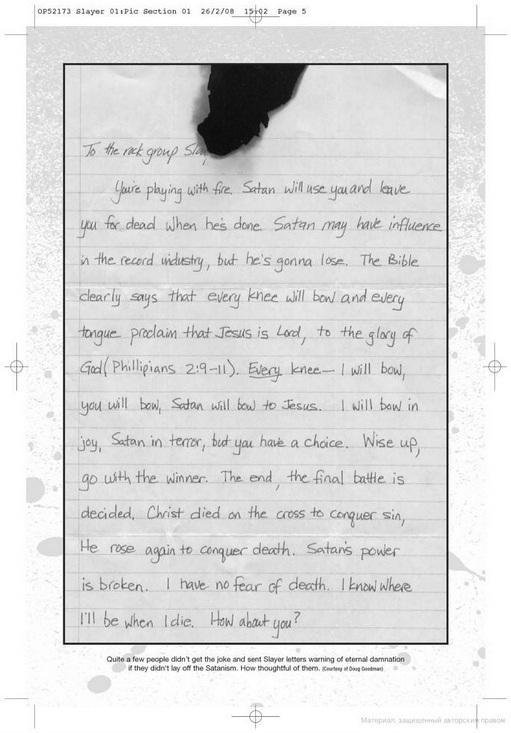 OP52173 Slayer 01:Pic Section 01 26/2/08 15:02 Page 5
To the rock group Sla
You're playing with fire. Satan will use you and leave
you for dead when he's done. Satan may have influence
in the record industry, but he's gonna lose. The Bible
clearly says that every knee will bow and every
tongue proclaim that Jesus is Lord, to the glory of
God (Phillipians 2:9-11). Every knee— I will bow,
you will bow, Satan will bow to Jesus. I will bow in
joy, Satan in terror, but you have a choice. Wise up,
go with the winner. The end, the final battle is
decided. Christ died on the cross to conquer sin,
He rose again to conquer death. Satan's power
is broken. I have no fear of death. I know where
I'll be when I die. How about you?
Quite a few people didn't get the joke and sent Slayer letters warning of eternal damnation
if they didn't lay off the Satanism. How thoughtful of them. (Courtesy of Doug Goodman)
Материал, защищенный авторским правом